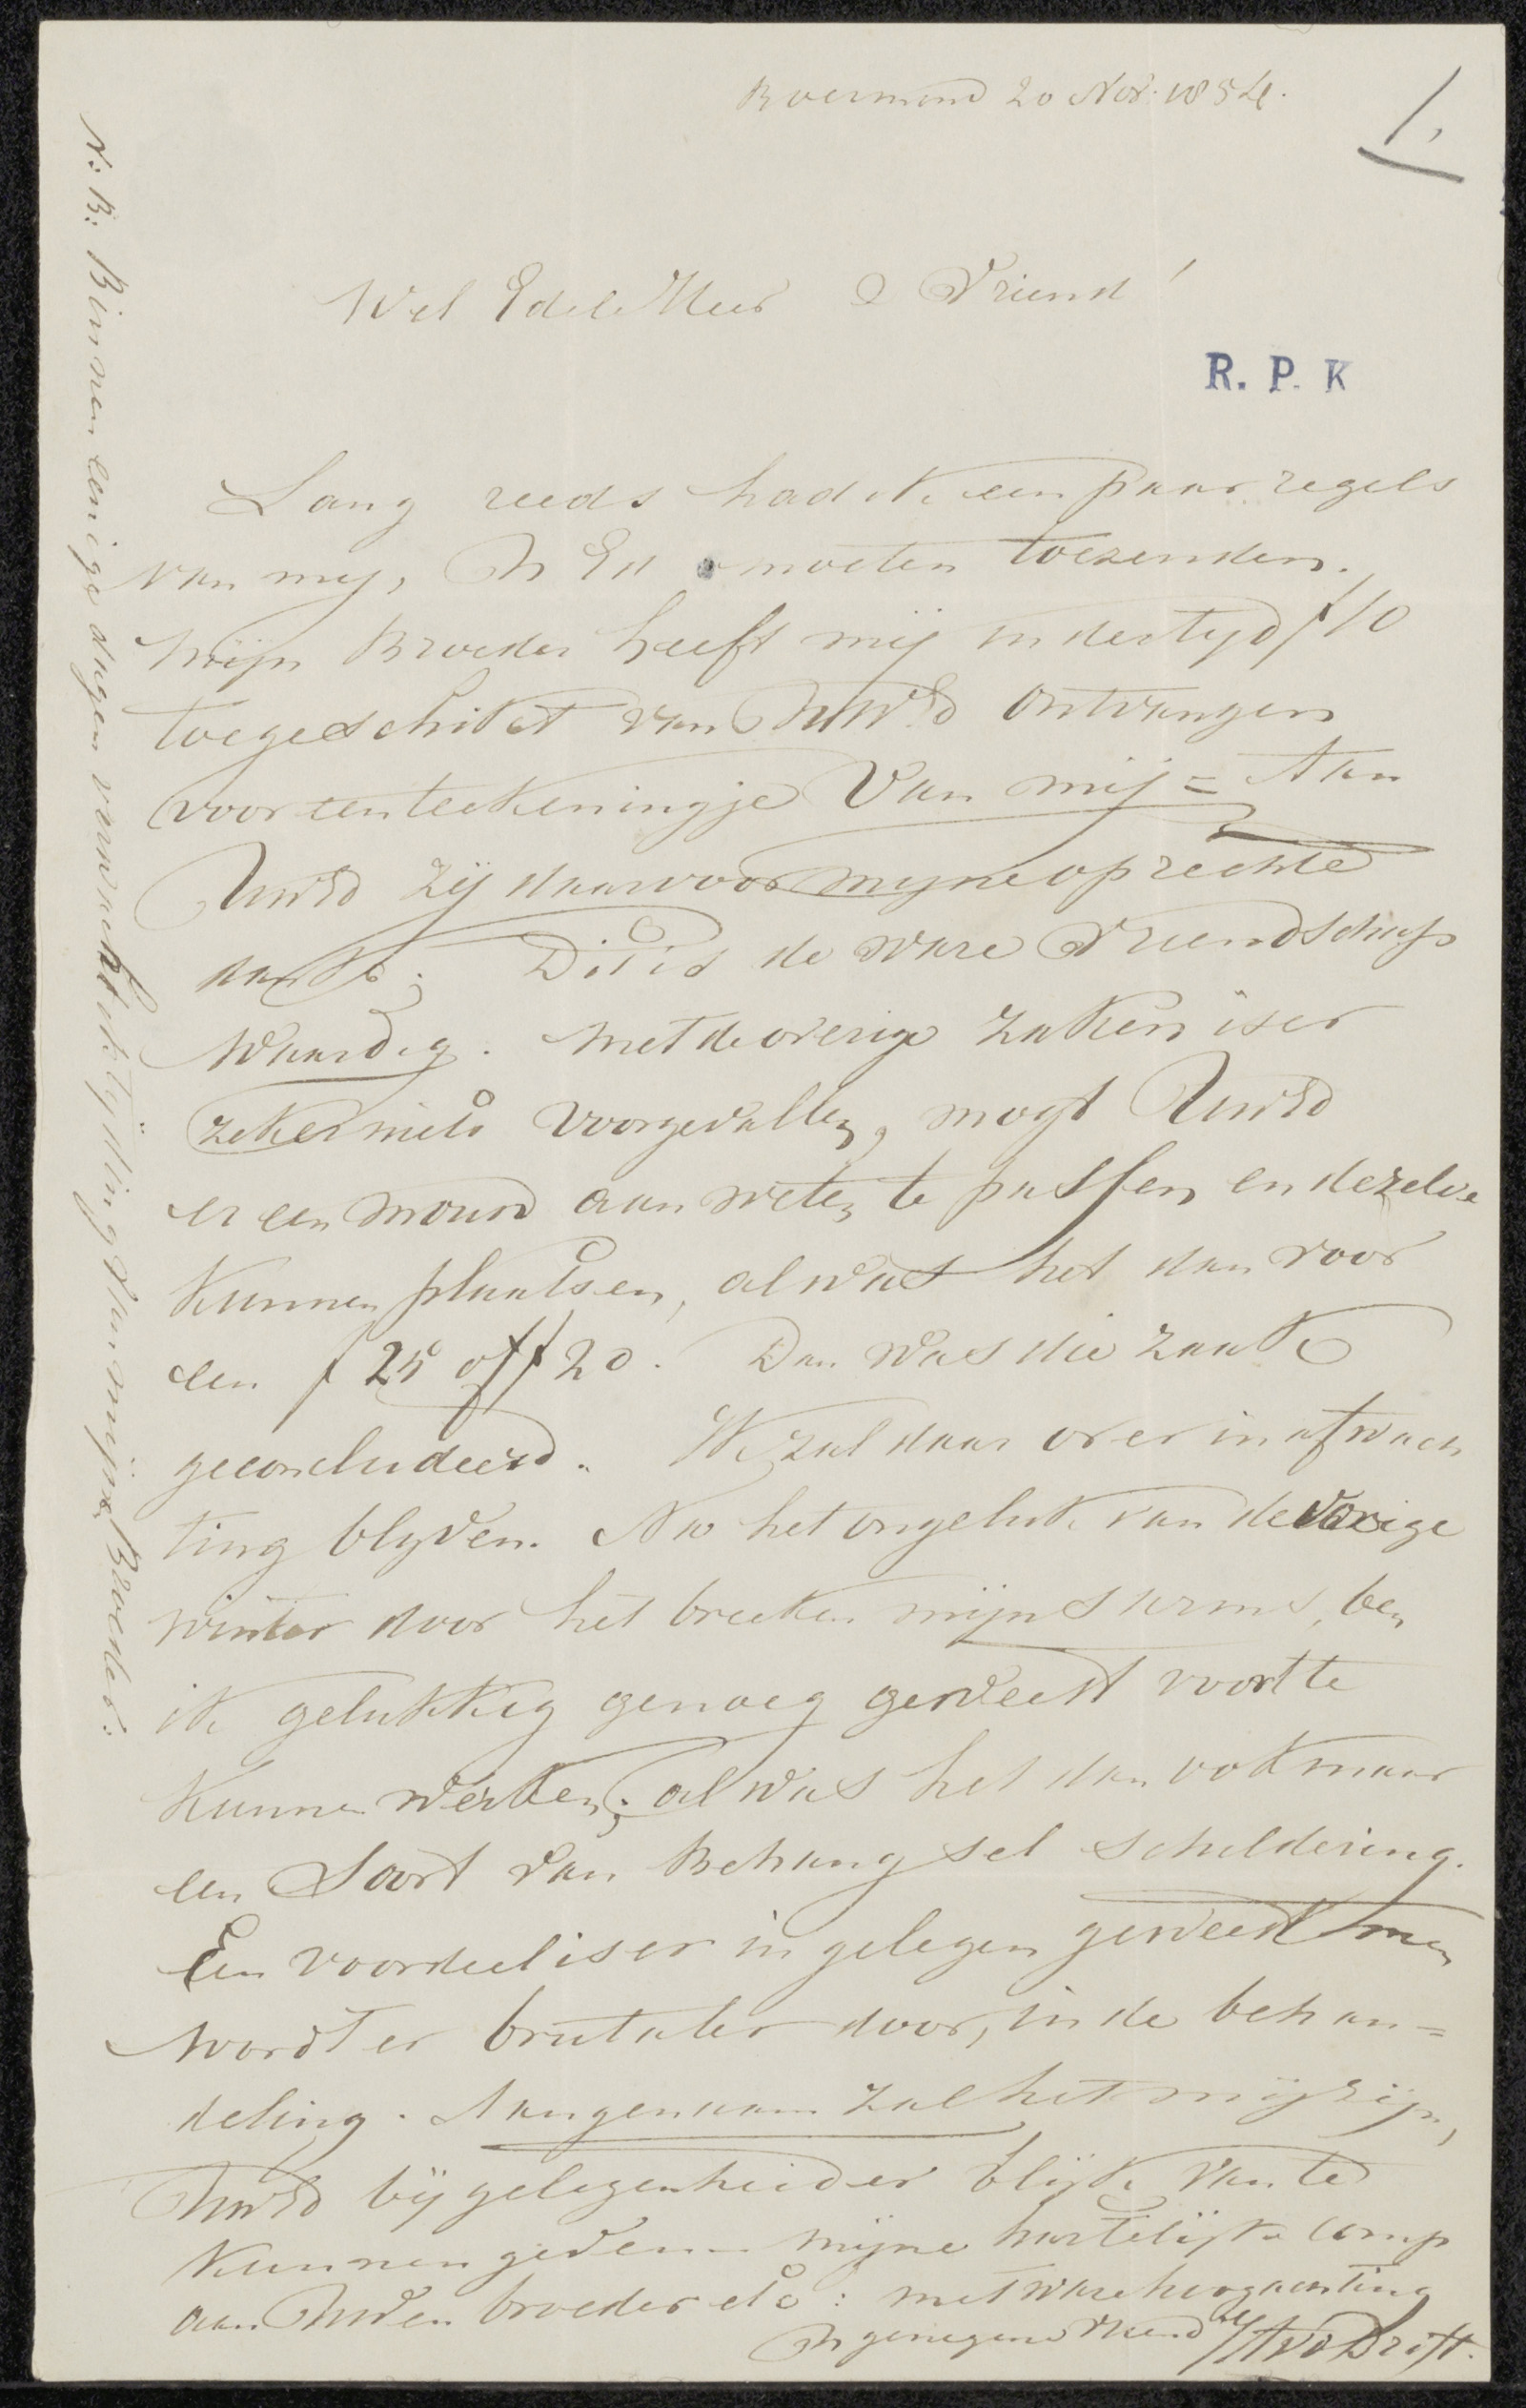 Roermond 20 Nov. 1854.
1.
Wel Edele Heer & Vriend!
R. P. K
Lang reeds had ik een paar regels
van my, U Ed moeten toezenden.
Mijn Broeder heeft mij indertyd f 10
toegeschikt van UWEd ontvangen
voor een teekeningje van mij = Aan
UWEd zij daarvoor myne oprechte
dank; Dit is de ware vriendschap
waardig. met de overige zaken is er
zeker niets voorgevallen, mogt UWEd
er een mouw aan weten te passen en dezelve
kunnen plaatsen, al was het dan voor
een f 25 of f 20. Dan was die zaak
geconcludeerd. Ik zal daar over in afwach
ting blyven. Na het ongeluk van de vorige
winter door het breeken mijns arms, ben
ik gelukkig genoeg geweest voort te
kunnen werken; al was het dan ook maar
een Soort van Behangsel schildering.
Een voordeel is er in gelegen geweest men
wordt er brutaler door, in de behan=
deling. Aangenaam zal het mij zijn,
UWEd bij gelegenheid er blijk van te
kunnen geven. Mijne hartelijke comp
aan Uwen broeder etc: met ware hoogachting
U genegene Vriend
N: B: Binnen eenige dagen verwacht ik tijding van mijn Broeder: